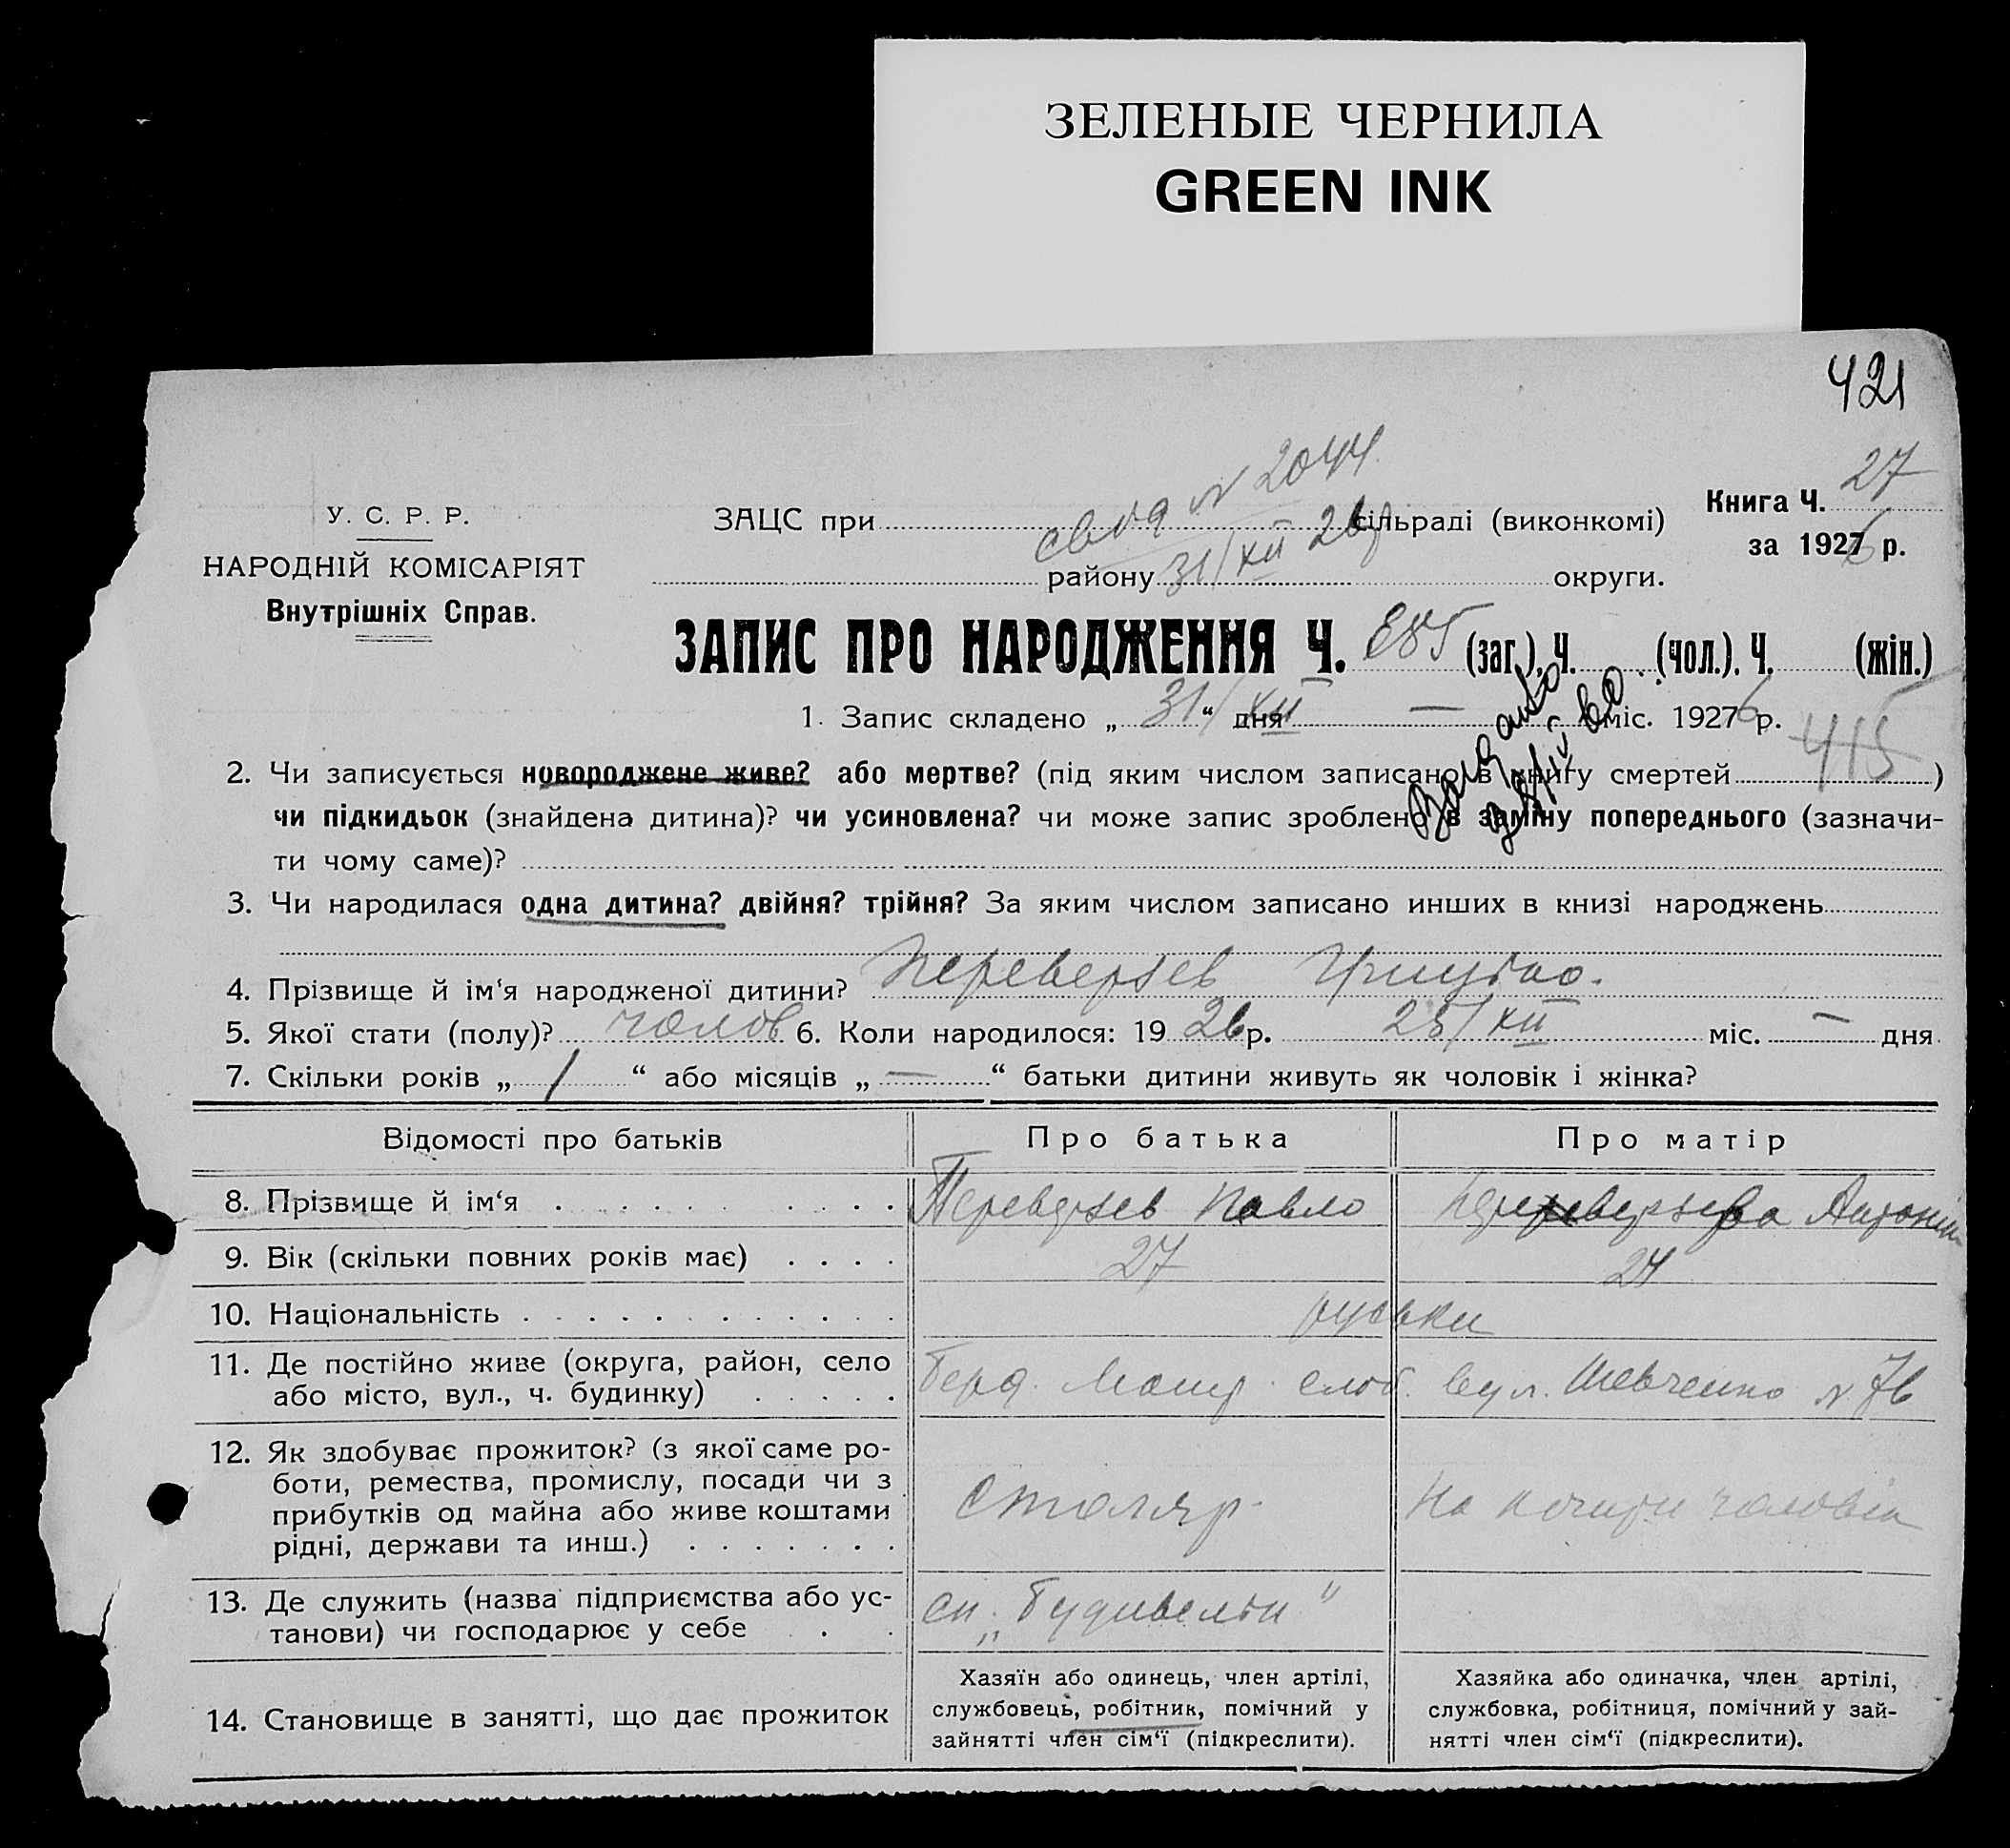 ЗЕЛЕНЫЕ ЧЕРНИЛА
GREEN INK
421
свід N 2044
27
Книга Ч.
У. С. Р. Р.
ЗАЦС при сільраді (виконкомі)
за 1926 р.
НАРОДНІЙ КОМІСАРІЯТ
району 31/XII 26р округи.
Внутрішніх Справ.
ЗАПИС ПРО НАРОДЖЕННЯ Ч. 885 (заг.), Ч. (чол.), Ч. (жін.)
1. Запис складено „ 31/ “ дня XII — міс. 1926 р.
415
2. Чи записується новороджене живе? або мертве? (під яким числом записано в книгу смертей )
чи підкидьок (знайдена дитина)? чи усиновлена? чи може запис зроблено в заміну попереднього (зазначи-
ти чому саме)?
3. Чи народилася одна дитина? двійня? трійня? За яким числом записано инших в книзі народжень
4. Прізвище й ім‘я народженої дитини? Переверзев
5. Якої стати (полу)? чолов 6. Коли народилося: 19 26 р. 25/XII міс. — дня
7. Скільки років „ 1 “ або місяців „ — “ батьки дитини живуть як чоловік і жінка?
Відомості про батьків Про батька Про матір
8. Прізвище й ім‘я Переверзев Павло Переверзева Антоніна
9. Вік (скільки повних років має) 27 24
10. Національність руськи
11. Де постійно живе (округа, район, село
або місто, вул., ч. будинку) Берд. слоб. вул. Шевченко N 76
12. Як здобуває прожиток? (з якої саме ро-
боти, ремества, промислу, посади чи з
прибутків од майна або живе коштами
рідні, держави та инш.) Столяр На кошти чоловіка
13. Де служить (назва підприємства або ус-
танови) чи господарює у себе сп. „Будивельн“
Хазяїн або одинець, член артілі,
службовець, робітник, помічний у
зайнятті член сім‘ї (підкреслити).
Хазяйка або одиначка, член артілі,
службовка, робітниця, помічний у зай-
нятті член сім‘ї (підкреслити).
14. Становище в занятті, що дає прожиток